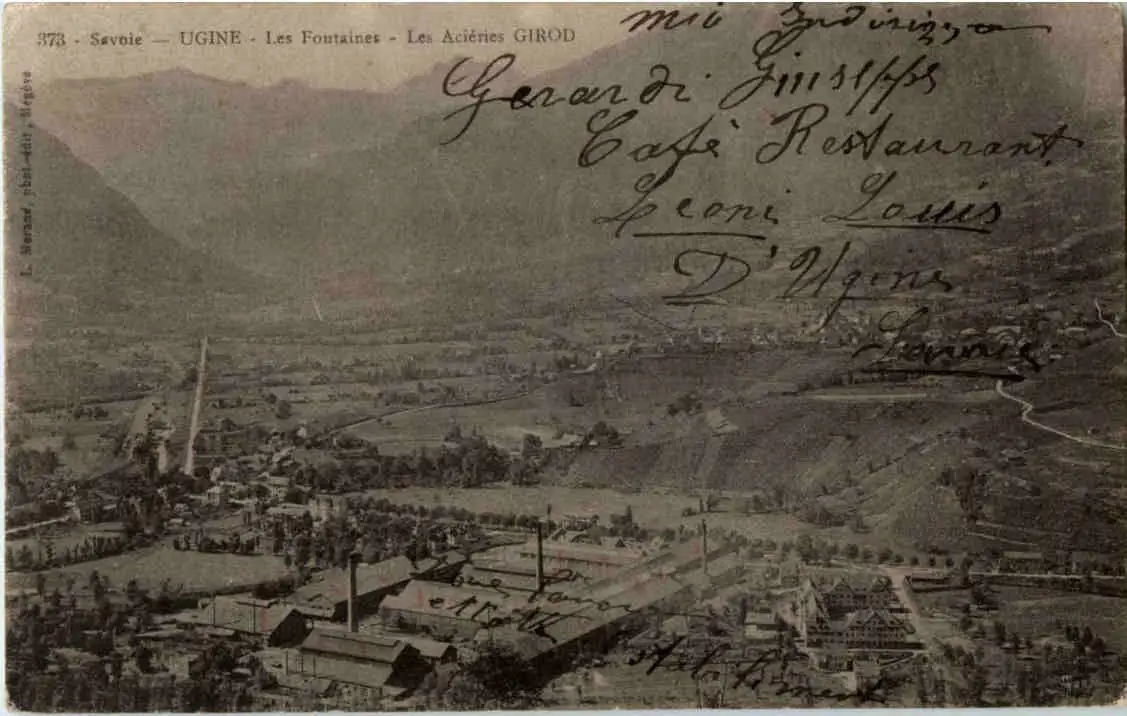 373 - Savoie — UGINE - Les Fontaines - Les Aciéries GIROD
L. Morand, phot-édit, Megève
mio Indirizzo
Gerardi Giuseppe
Café Restaurant
Leoni Louis
D'Ugine
Savoie